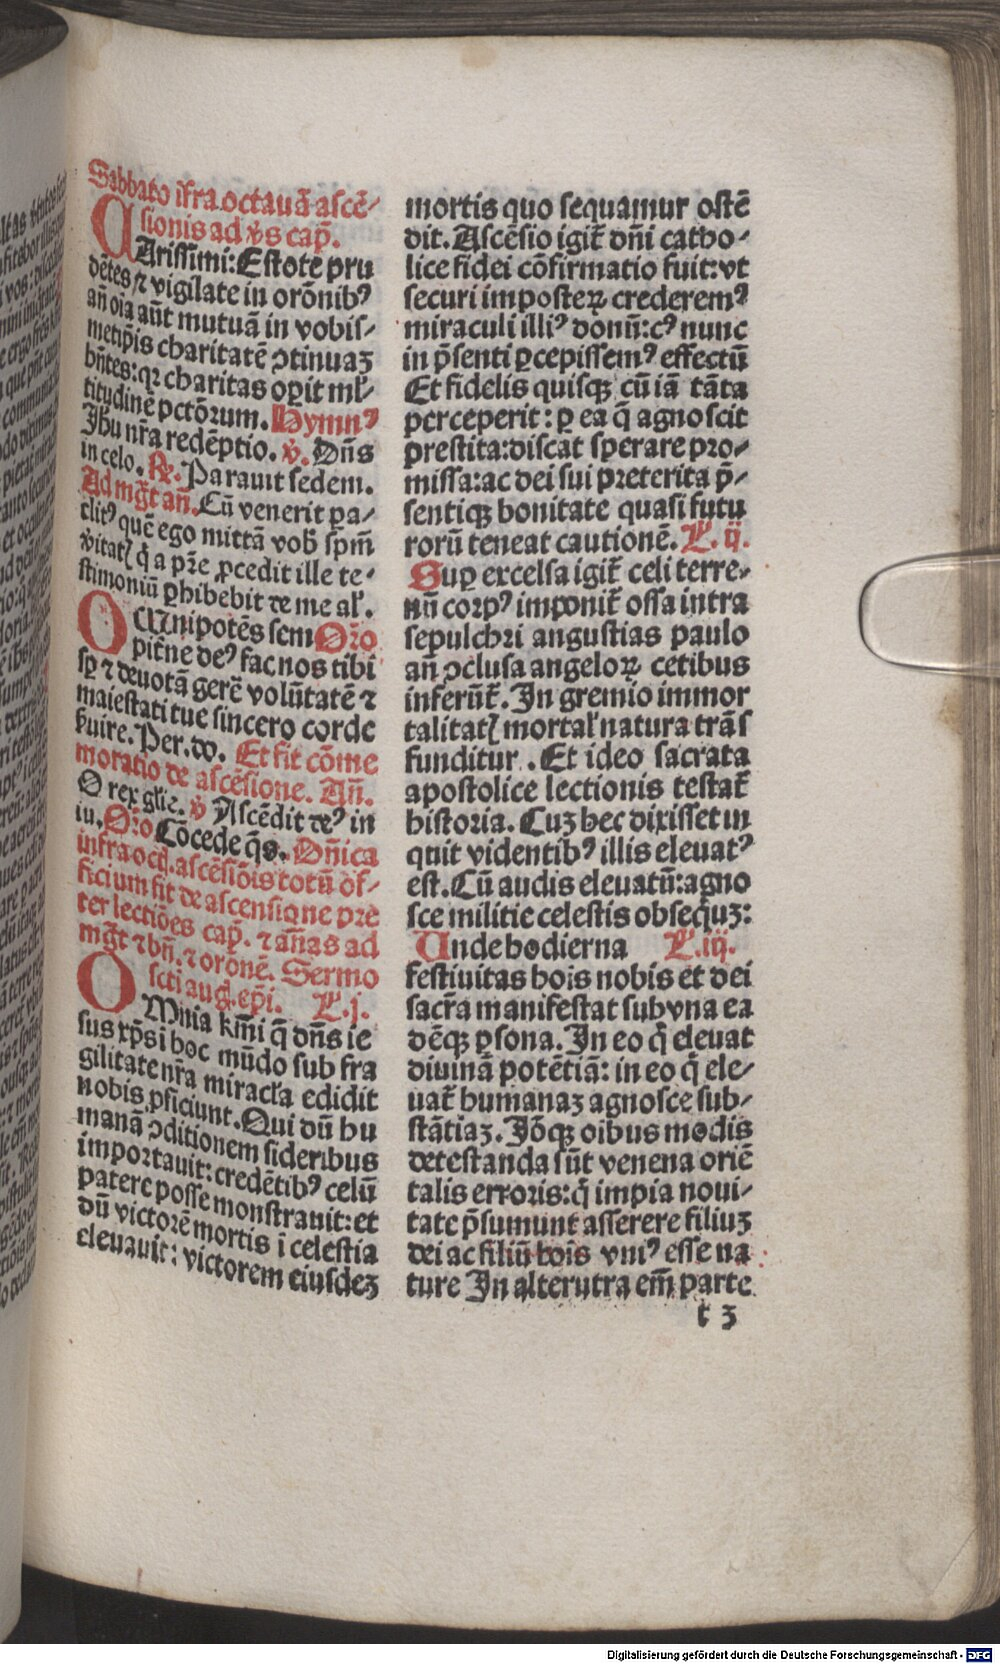 Sabbato ifra octauã ascẽ⸗
sionis ad v̾s cap̃.
CArissimi: Estote pru
dẽtes ⁊ vigilate in orõnibꝰ
añ oĩa aũt mutuã in vobis⸗
metip̃is charitatẽ ꝯtinuaꝫ
hñtes: qꝛ charitas oꝑit ml̃⸗
titudinẽ pctõrum. Hymnꝰ
Jhu nr̃a redẽptio. ℣. Dñs
in celo. ℟. Parauit sedem.
Ad mg̃t añ. Cũ venerit pa⸗
clitꝰ quẽ ego mittã vob̃ spm̃
v̾itatꝭ q̃ a pr̃e ꝓcedit ille te⸗
stimoniũ ꝑhibebit de me al̾.
OMnipotẽs sem Or̃o
pitr̃ne deꝰ fac nos tibi
sꝑ ⁊ deuotã gerẽ volũtatẽ ⁊
maiestati tue sincero corde
s̾uire. Per. do. Et fit cõme
moratio de ascẽsione. Añ.
O rex glie. ℣ Ascẽdit deꝰ in
iu. Or̃o Cõcede q̃s. Dñica
infra oct̃. ascẽsiõis totũ of⸗
ficium fit de ascensione pre
ter lectiões cap̃. ⁊ añas ad
mg̃t ⁊ bñ. ⁊ oronẽ. Sermo
scti aug̃. ep̃i. L̾. j.
OMnia km̃i q̃ dñs ie
sus xp̃s ĩ hoc mũdo sub fra
gilitate nr̃a miracl̾a edidit
nobis ꝓficiunt. Qui dũ hu
manã ꝯditionem sideribus
importauit: credẽtibꝰ celũ
patere posse monstrauit: et
dũ victorẽ mortis ĩ celestia
eleuauit: victorem eiusdeꝫ
mortis quo sequamur ostẽ
dit. Ascẽsio igit̃ dñi catho⸗
lice fidei cõfirmatio fuit: vt
securi imposteꝝ crederemꝰ
miraculi illiꝰ donũ: cꝰ nunc
in p̃senti ꝑcepissemꝰ effectũ
Et fidelis quisqꝫ cũ iã tãta
perceperit: ꝑ ea q̃ agnoscit
prestita: discat sperare pro⸗
missa: ac dei sui preterita p̃⸗
sentiqꝫ bonitate quasi futu
rorũ teneat cautionẽ. L̾. ij.
Suꝑ excelsa igit̃ celi terre⸗
nũ corpꝰ imponit̃ ossa intra
sepulchri angustias paulo
añ ꝯclusa angeloꝝ cetibus
inferũt̃. In gremio immor
talitatꝭ mortal̾ natura trãs
funditur. Et ideo sacrata
apostolice lectionis testat̃
historia. Cuꝫ hec dixisset in
quit videntibꝰ illis eleuatꝰ
est. Cũ audis eleuatũ: agno
sce militie celestis obseq̃uꝫ:
Unde hodierna L̾. iij.
festiuitas hoĩs nobis et dei
sacr̃a manifestat sub vna ea
dẽqꝫ ꝑsona. In eo q̃ eleuat
diuinã potẽtiã: in eo q̃ ele⸗
uat̃ humanaꝫ agnosce sub⸗
stãtiaꝫ. Iõqꝫ oĩbus modis
detestanda sũt venena oriẽ
talis erroris: q̃ impia noui⸗
tate p̃sumunt asserere filiuꝫ
dei ac filiũ hoĩs vniꝰ esse na
ture In alterutra em̃ parte
t 3
Digitalisierung gefördert durch die Deutsche Forschungsgemeinschaft - DFG